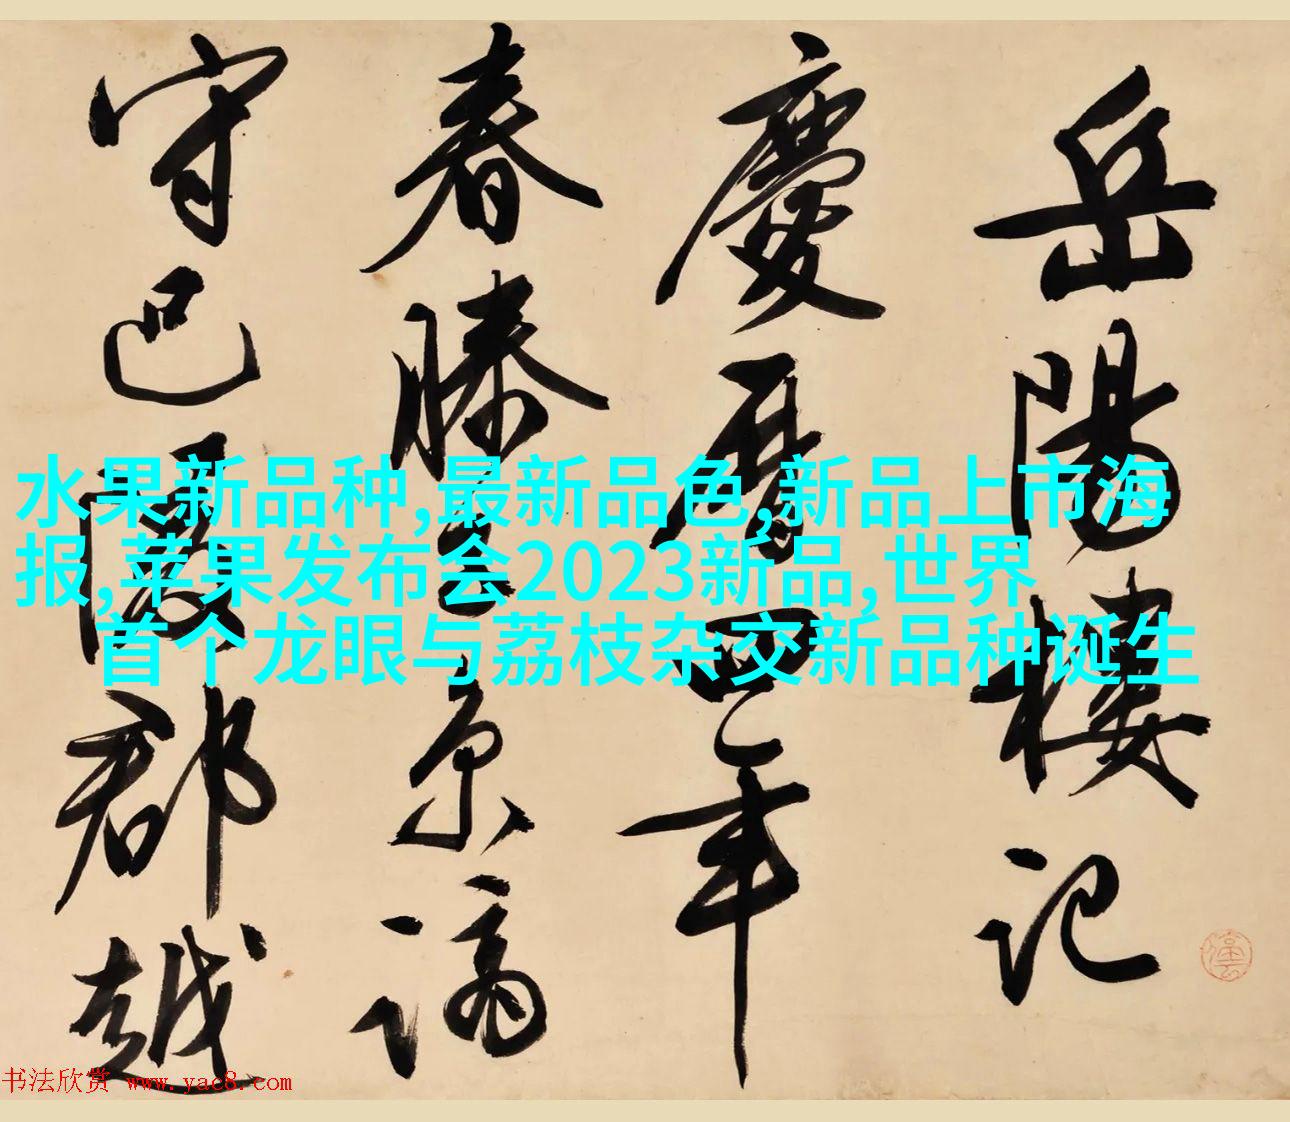 岳陽樓記
慶曆四年
春滕子京謫
守巴陵郡越
水果新品种,最新品色,新品上市海
报,苹果发布会2023新品,世界
首个龙眼与荔枝杂交新品种诞生
书法欣赏 www.yac8.com